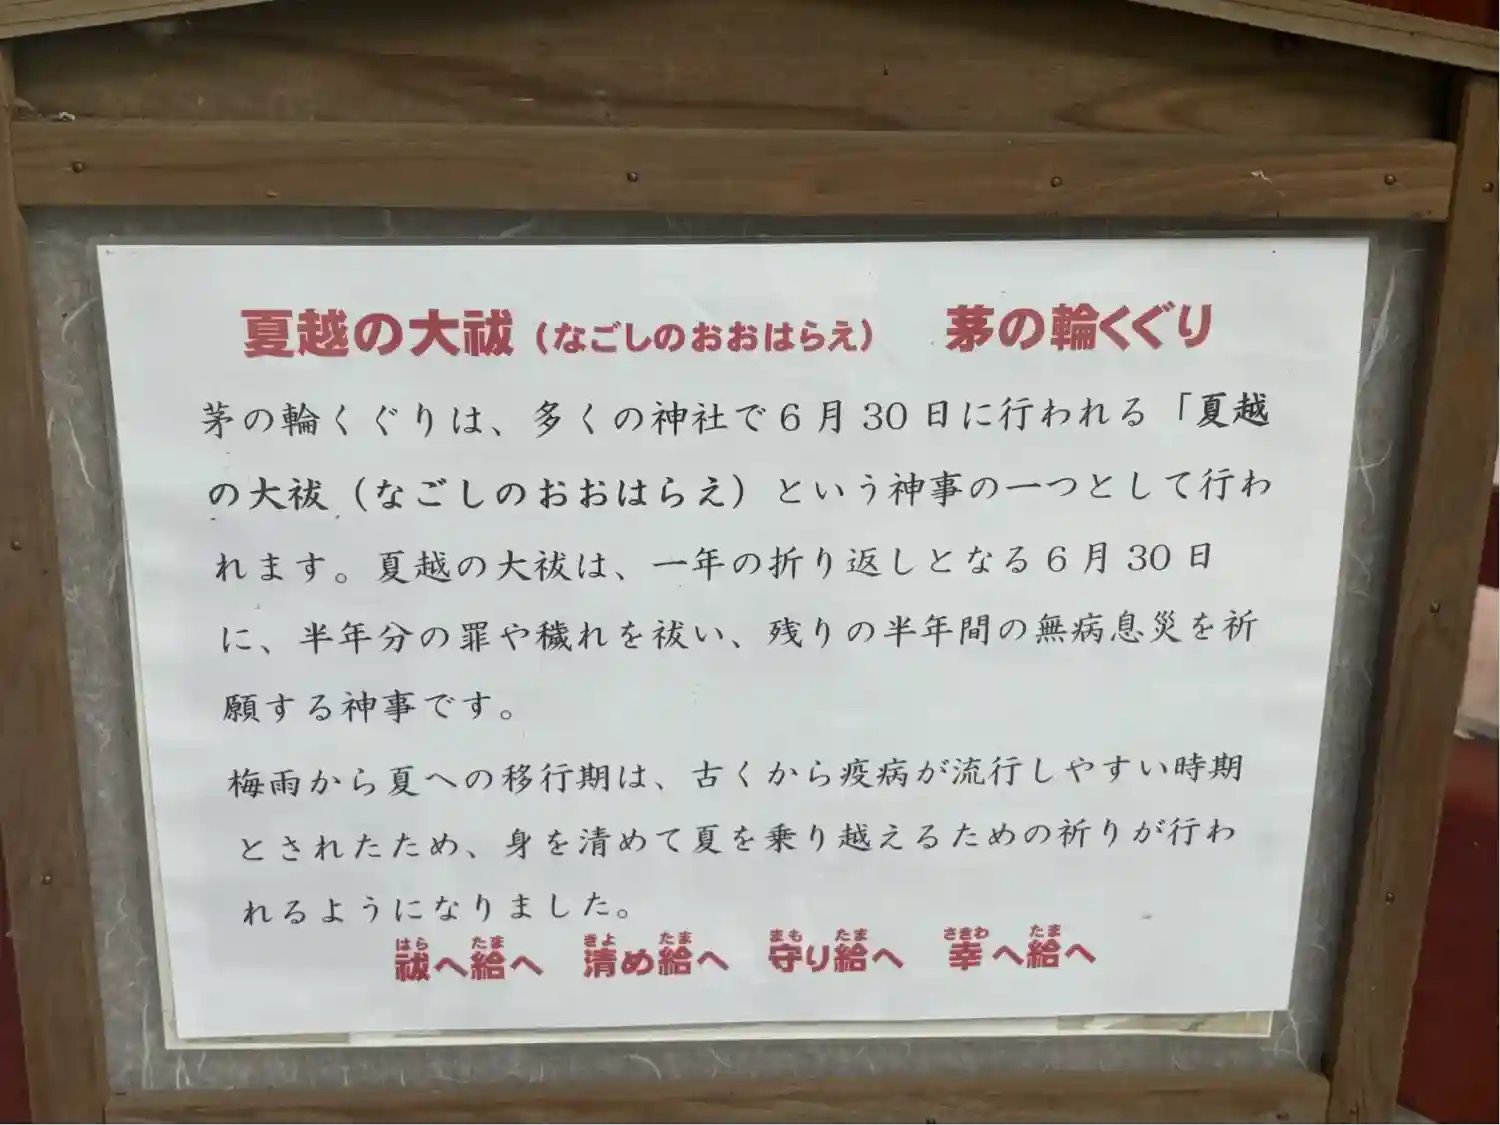 夏越の大祓(なごしのおおはらえ) 茅の輪くぐり
茅の輪くぐりは、多くの神社で6月30日に行われる「夏越
の大祓(なごしのおおはらえ)という神事の一つとして行わ
れます。夏越の大祓は、一年の折り返しとなる6月30日
に、半年分の罪や穢れを祓い、残りの半年間の無病息災を祈
願する神事です。
梅雨から夏への移行期は、古くから疫病が流行しやすい時期
とされたため、身を清めて夏を乗り越えるための祈りが行わ
れるようになりました。
はら たま きよ たま まも たま さきわ たま
祓へ給へ 清め給へ 守り給へ 幸へ給へ